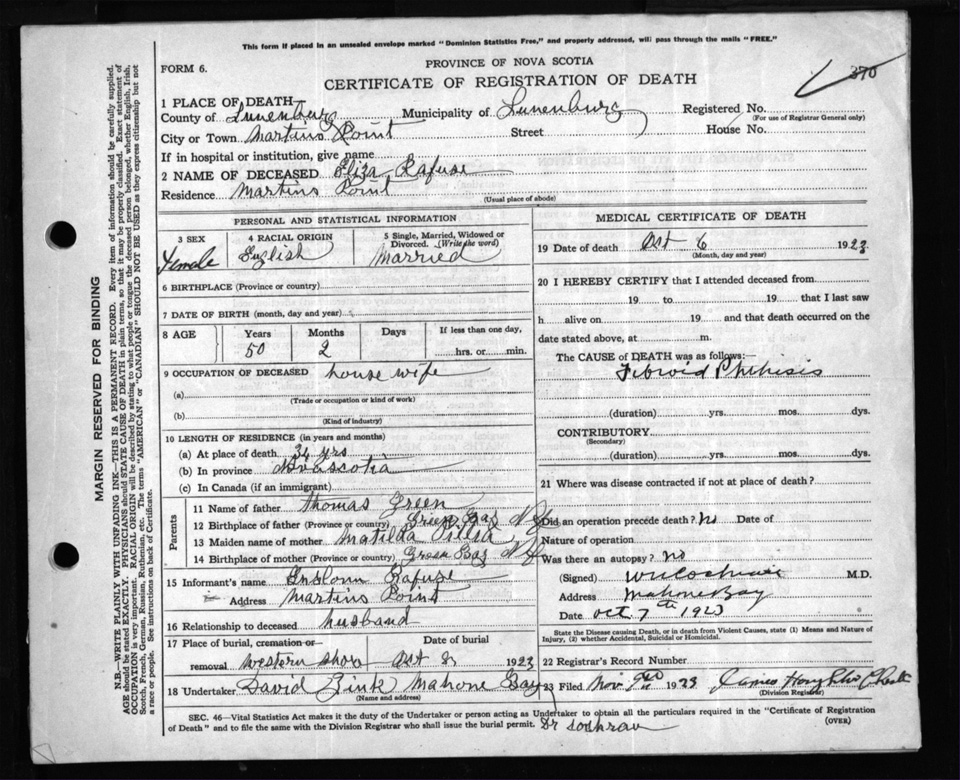 This form if placed in an unsealed envelope marked "Dominion Statistics Free," and properly addressed, will pass through the mails "FREE."
PROVINCE OF NOVA SCOTIA
FORM 6.
370
CERTIFICATE OF REGISTRATION OF DEATH
1 PLACE OF DEATH—
County of Lunenburg Municipality of Lunenburg Registered No.
(For use of Registrar General only)
City or Town Martins Point Street House No.
If in hospital or institution, give name
2 NAME OF DECEASED Eliza Rafuse
Residence Martins Point
(Usual place of abode)
PERSONAL AND STATISTICAL INFORMATION
3 SEX 4 RACIAL ORIGIN 5 Single, Married, Widowed or Divorced. (Write the word)
Female English Married
6 BIRTHPLACE (Province or country)
7 DATE OF BIRTH (month, day and year)
8 AGE Years Months Days If less than one day,
50 2 hrs. or min.
9 OCCUPATION OF DECEASED house wife
(a)
(Trade or occupation or kind of work)
(b)
(Kind of industry)
10 LENGTH OF RESIDENCE (in years and months)
(a) At place of death 34 yrs
(b) In province Novascotia
(c) In Canada (if an immigrant)
Parents
11 Name of father Thomas Green
12 Birthplace of father (Province or country) Green Bay
13 Maiden name of mother Matilda
14 Birthplace of mother (Province or country) Green Bay
15 Informant's name Rafuse
Address Martins Point
16 Relationship to deceased husband
17 Place of burial, cremation or Date of burial
removal Western Shore Oct 8 1923
18 Undertaker David Zink Mahone Bay
(Name and address)
MEDICAL CERTIFICATE OF DEATH
19 Date of death Oct 6 1923
(Month, day and year)
20 I HEREBY CERTIFY that I attended deceased from
19 to 19 that I last saw
h alive on 19 and that death occurred on the
date stated above, at m.
The CAUSE of DEATH was as follows:—
Fibroid Phthisis
(duration) yrs. mos. dys.
CONTRIBUTORY
(Secondary)
(duration) yrs. mos. dys.
21 Where was disease contracted if not at place of death?
Did an operation precede death? no Date of
Nature of operation
Was there an autopsy? no
(Signed) W Cochrane M.D.
Address Mahone Bay
Date Oct 7th 1923
State the Disease causing Death, or in death from Violent Causes, state (1) Means and Nature of
Injury, (2) whether Accidental, Suicidal or Homicidal.
22 Registrar's Record Number
23 Filed Nov 1923 James
(Division Registrar)
SEC. 46—Vital Statistics Act makes it the duty of the Undertaker or person acting as Undertaker to obtain all the particulars required in the "Certificate of Registration
of Death" and to file the same with the Division Registrar who shall issue the burial permit. Dr Cochran (OVER)
MARGIN RESERVED FOR BINDING
N.B.—WRITE PLAINLY WITH UNFADING INK—THIS IS A PERMANENT RECORD. Every item of information should be carefully supplied.
AGE should be stated EXACTLY. PHYSICIANS should STATE CAUSE OF DEATH in plain terms, so that it may be properly classified. Exact statement of
OCCUPATION is very important. RACIAL ORIGIN will be described by stating to what people or tongue the deceased person belonged, whether English, Irish,
Scotch, French, German, Russian, Ruthenian, etc. The terms "AMERICAN" or "CANADIAN" SHOULD NOT BE USED as they express citizenship but not
a race or people. See instructions on back of Certificate.